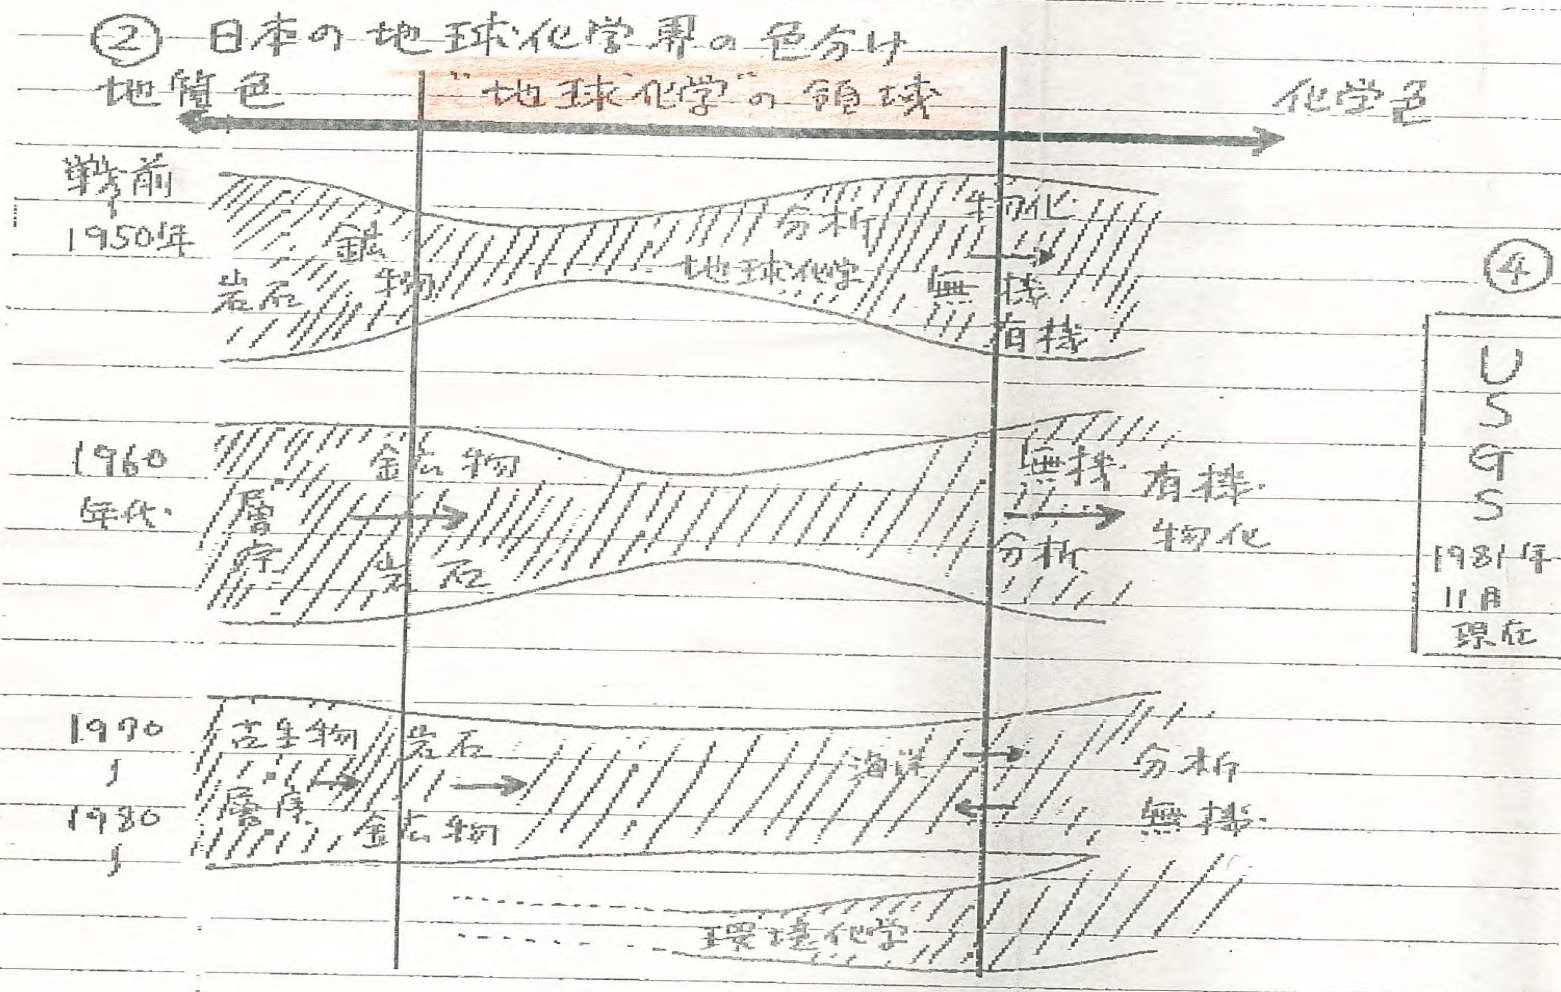 ② 日本の地球化学界の色分け
地質色
"地球化学"の領域
化学色
戦前
〜
1950年
鉱物
岩石
分析
地球化学
物化
無機
有機
1960
年代
鉱物
層序
岩石
無機
分析
有機
物化
1970
〜
1980
〜
古生物
層序
岩石
鉱物
海洋
分析
無機
環境化学
④
USGS
1981年
11月
現在